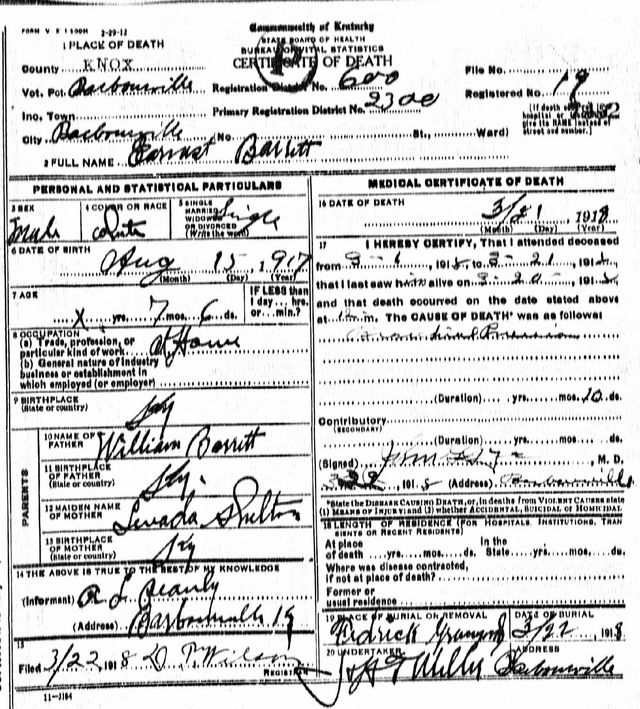 FORM V S 1 500M 2-29-12
Commonwealth of Kentucky
STATE BOARD OF HEALTH
BUREAU OF VITAL STATISTICS
CERTIFICATE OF DEATH
1 PLACE OF DEATH
County KNOX
Vot. Pct. Barbourville
Inc. Town
City Barbourville No. St., Ward)
Registration District No. 600
Primary Registration District No. 2300
File No.
Registered No. 19
(If death occurred in a hospital or institution give its NAME instead of street and number.)
2 FULL NAME Forrest Barrett
PERSONAL AND STATISTICAL PARTICULARS
3 SEX
Male
4 COLOR OR RACE
White
5 SINGLE MARRIED WIDOWED OR DIVORCED (Write the word)
Single
6 DATE OF BIRTH
Aug 15, 1917
(Month) (Day) (Year)
7 AGE
x yrs. 7 mos. 6 ds.
IF LESS then 1 day... hrs. or min.?
8 OCCUPATION
(a) Trade, profession, or particular kind of work At Home
(b) General nature of industry business or establishment in which employed (or employer)
9 BIRTHPLACE (State or country) Ky
PARENTS
10 NAME OF FATHER William Barrett
11 BIRTHPLACE OF FATHER (State or country) Ky.
12 MAIDEN NAME OF MOTHER Levada Shelton
13 BIRTHPLACE OF MOTHER (State or country) Ky
14 THE ABOVE IS TRUE TO THE BEST OF MY KNOWLEDGE
(Informant)
(Address) Barbourville Ky
15
Filed 3/22, 1918 D. P. Wilson
REGISTRAR
11-3184
MEDICAL CERTIFICATE OF DEATH
16 DATE OF DEATH
3/21, 1918
(Month) (Day) (Year)
17 I HEREBY CERTIFY, That I attended deceased
from 3-1, 1918 to 3-21, 1918
that I last saw him alive on 3-20-, 1918
and that death occurred on the date stated above
at m. The CAUSE OF DEATH* was as follows:
(Duration) yrs. mos. 10 ds.
Contributory
(SECONDARY)
(Duration) yrs. mos. ds.
(Signed) M. D.
3-22, 1918 (Address) Barbourville
*State the DISEASE CAUSING DEATH, or, in deaths from VIOLENT CAUSES state
(1) MEANS OF INJURY; and (2) whether ACCIDENTAL, SUICIDAL or HOMICIDAL.
18 LENGTH OF RESIDENCE (FOR HOSPITALS, INSTITUTIONS, TRANSIENTS OR RECENT RESIDENTS)
At place of death yrs. mos. ds. In the State yrs. mos. ds.
Where was disease contracted,
if not at place of death?
Former or
usual residence
19 PLACE OF BURIAL OR REMOVAL
DATE OF BURIAL
3/22, 1918
20 UNDERTAKER
Miller
ADDRESS
Barbourville